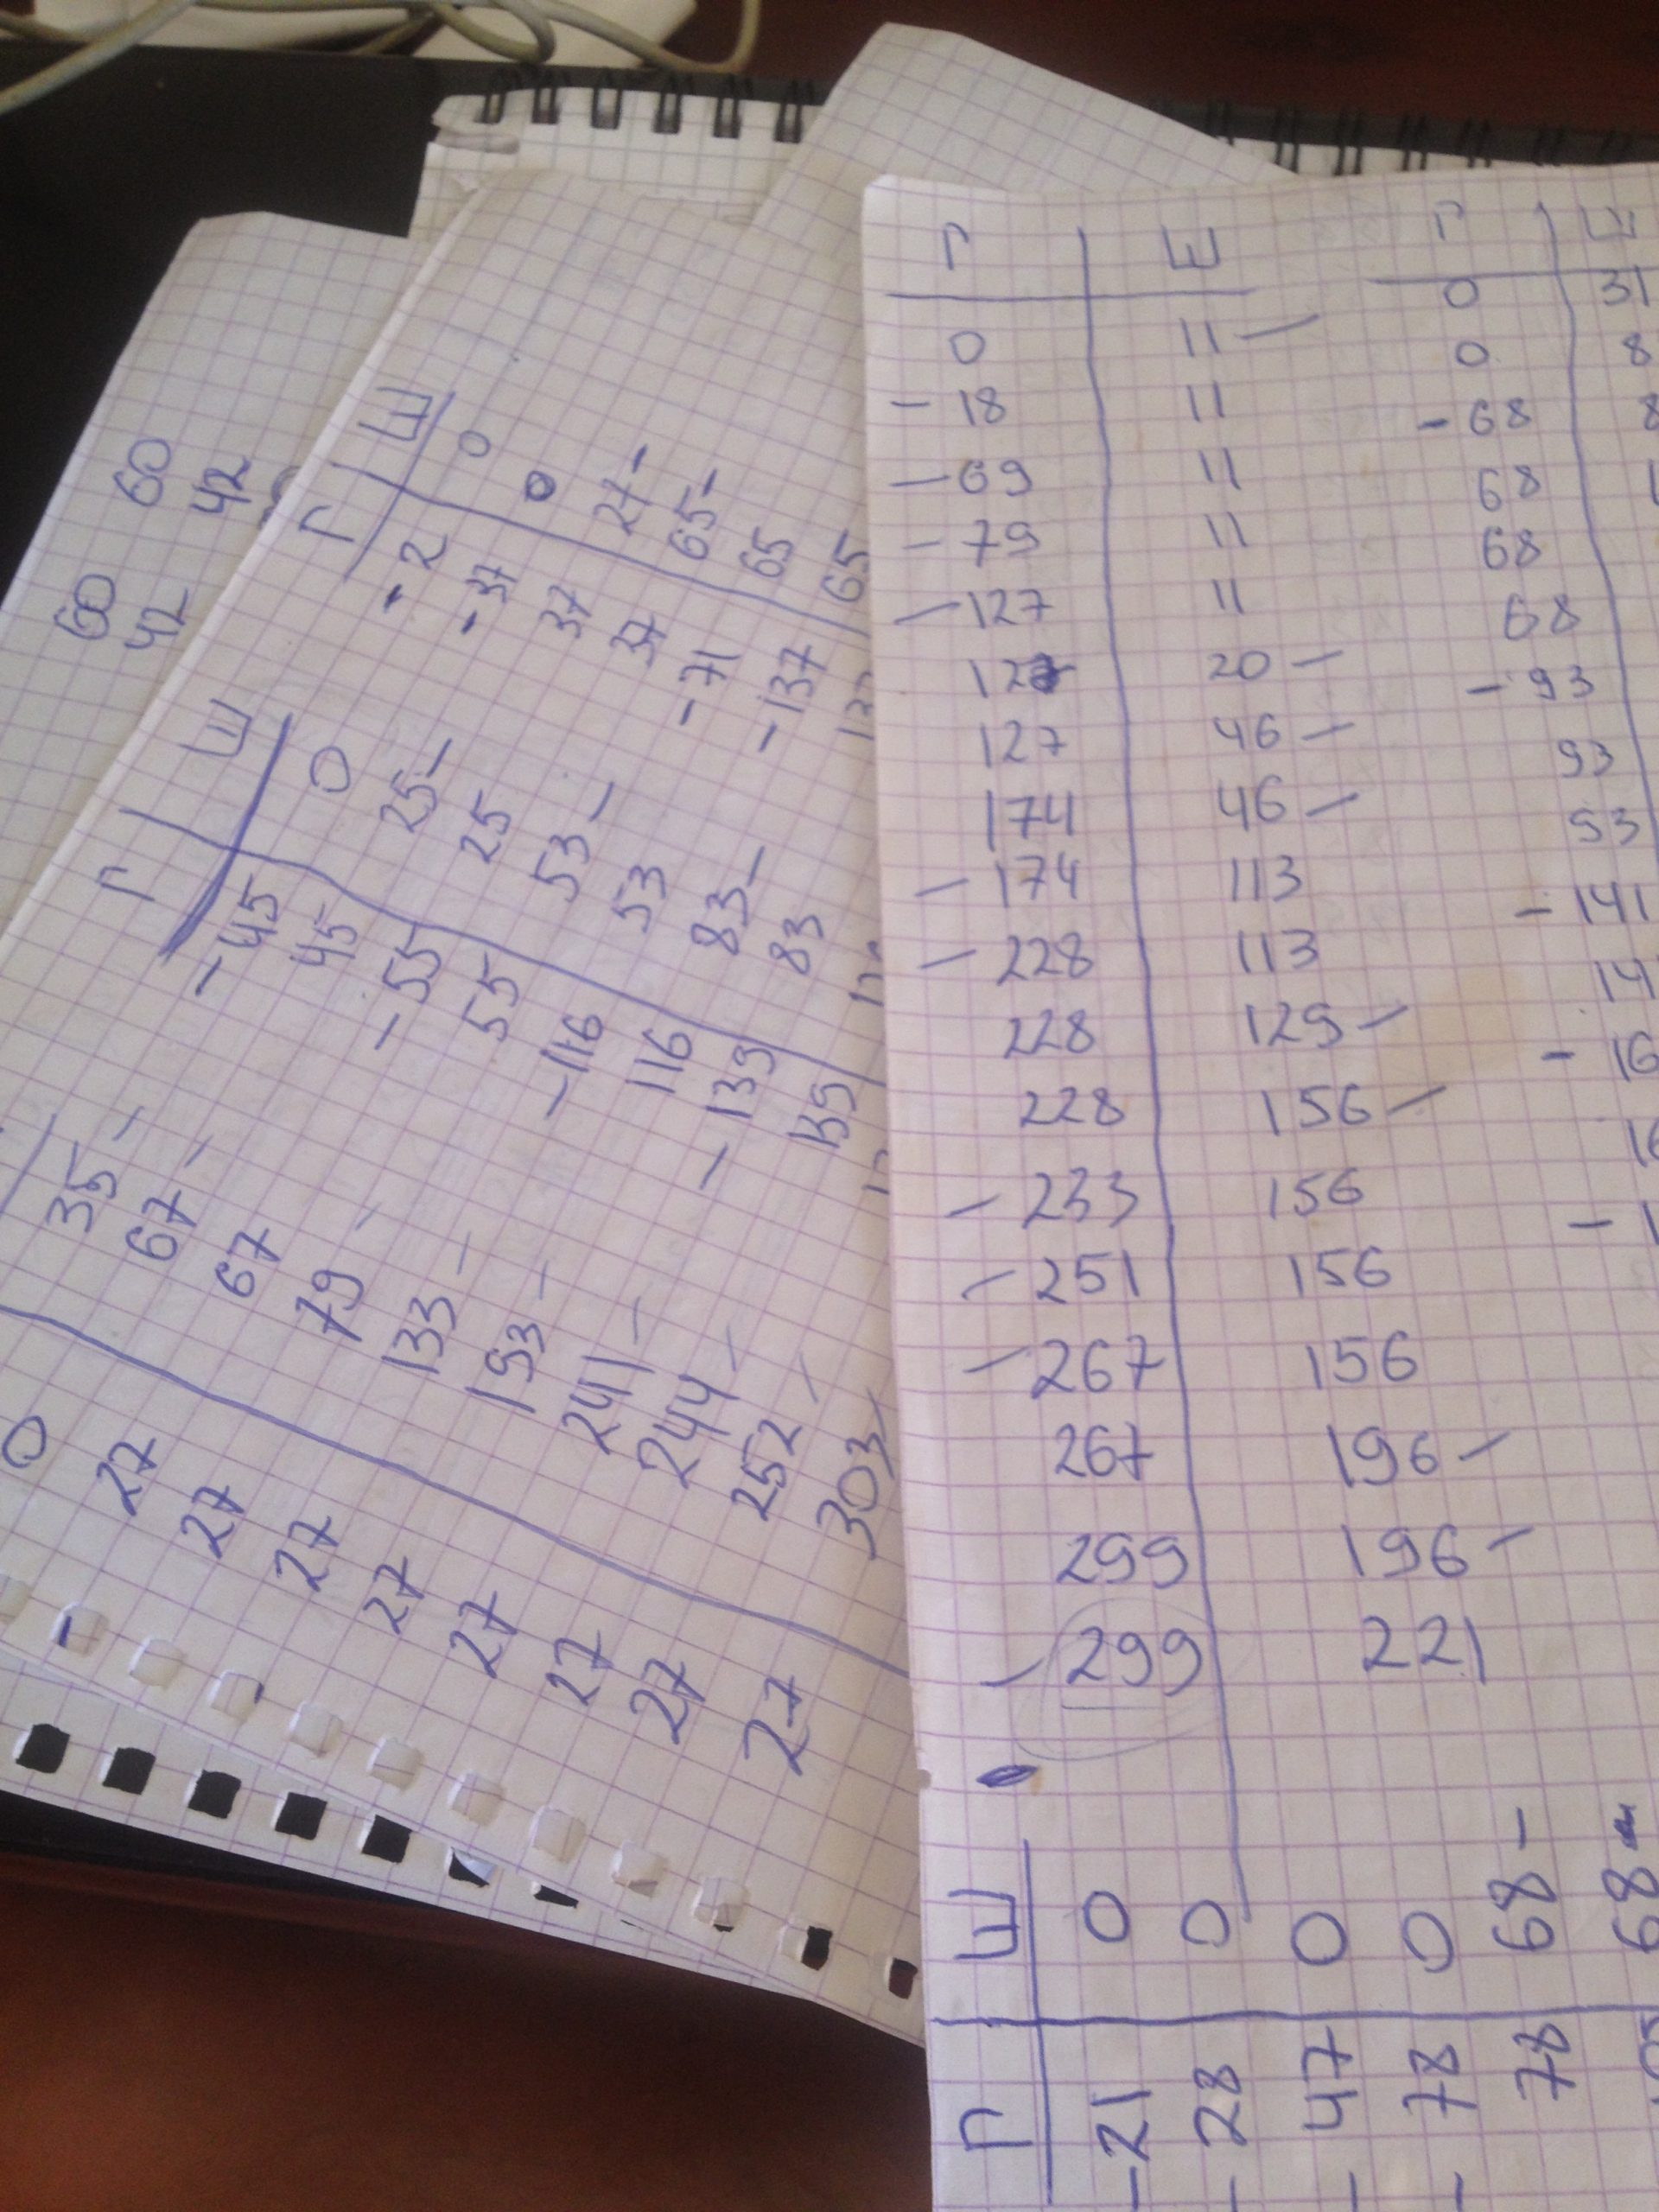 Г Ш Г Ш
0 31
0 11 – 0 8
– 18 11 – 68 8
– 69 11 68
– 79 11 68
– 127 11 68
127 20 – – 93
127 46 – 93
174 46 – 93
– 174 113 – 141
– 228 113
228 129 –
228 156 –
– 233 156
– 251 156
– 267 156
267 196 –
299 196 –
– 299 221
Г Ш
– 21 0
– 28 0
– 47 0
– 78 0
78 68 –
68
Г Ш
– 2 0
– 37 0
37 27 –
37 65 –
– 71 65
– 137 65
Г Ш
– 45 0
45 25 –
– 55 25
55 53 –
– 116 53
116 83 –
– 139 83
139
0 35 –
27 67 –
27 67
27 79 –
27 133 –
27 193 –
27 241 –
27 244 –
27 252 –
303 –
60 60
42 42